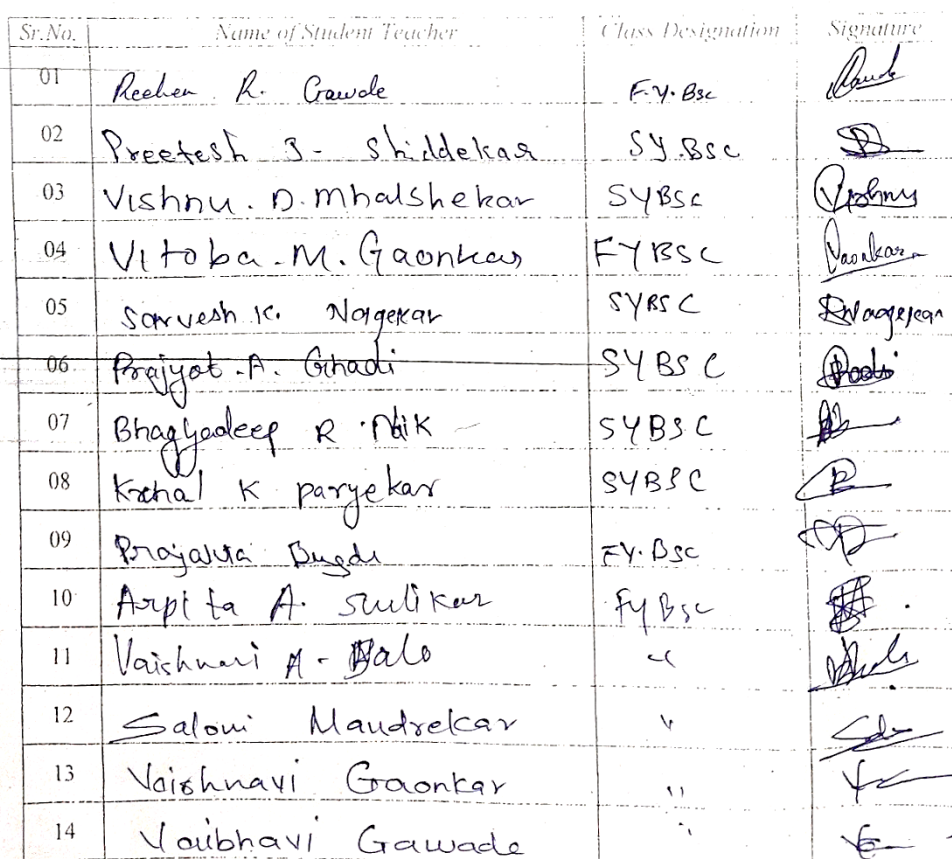 Sr.No. Name of Student Teacher Class Designation Signature
01 R. Gawde F.Y. Bsc
02 Preetesh J- Shiddekar SY.BSC
03 Vishnu. D. Mhalshekar SYBSC Vishnu
04 Vitoba. M. Gaonkar FYBSC Gaonkar
05 Sarvesh K. Nagekar SYBSC Nagekar
06 Prajyot .A. Ghadi SYBSC
07 Bhagyadeep R Naik SYBSC
08 K Paryekar SYBSC
09 FY. BSC
10 Arpita A. FYBSC
11 Vaishnavi A - "
12 Saloni Mandrekar "
13 Vaishnavi Gaonkar "
14 Vaibhavi Gawade "